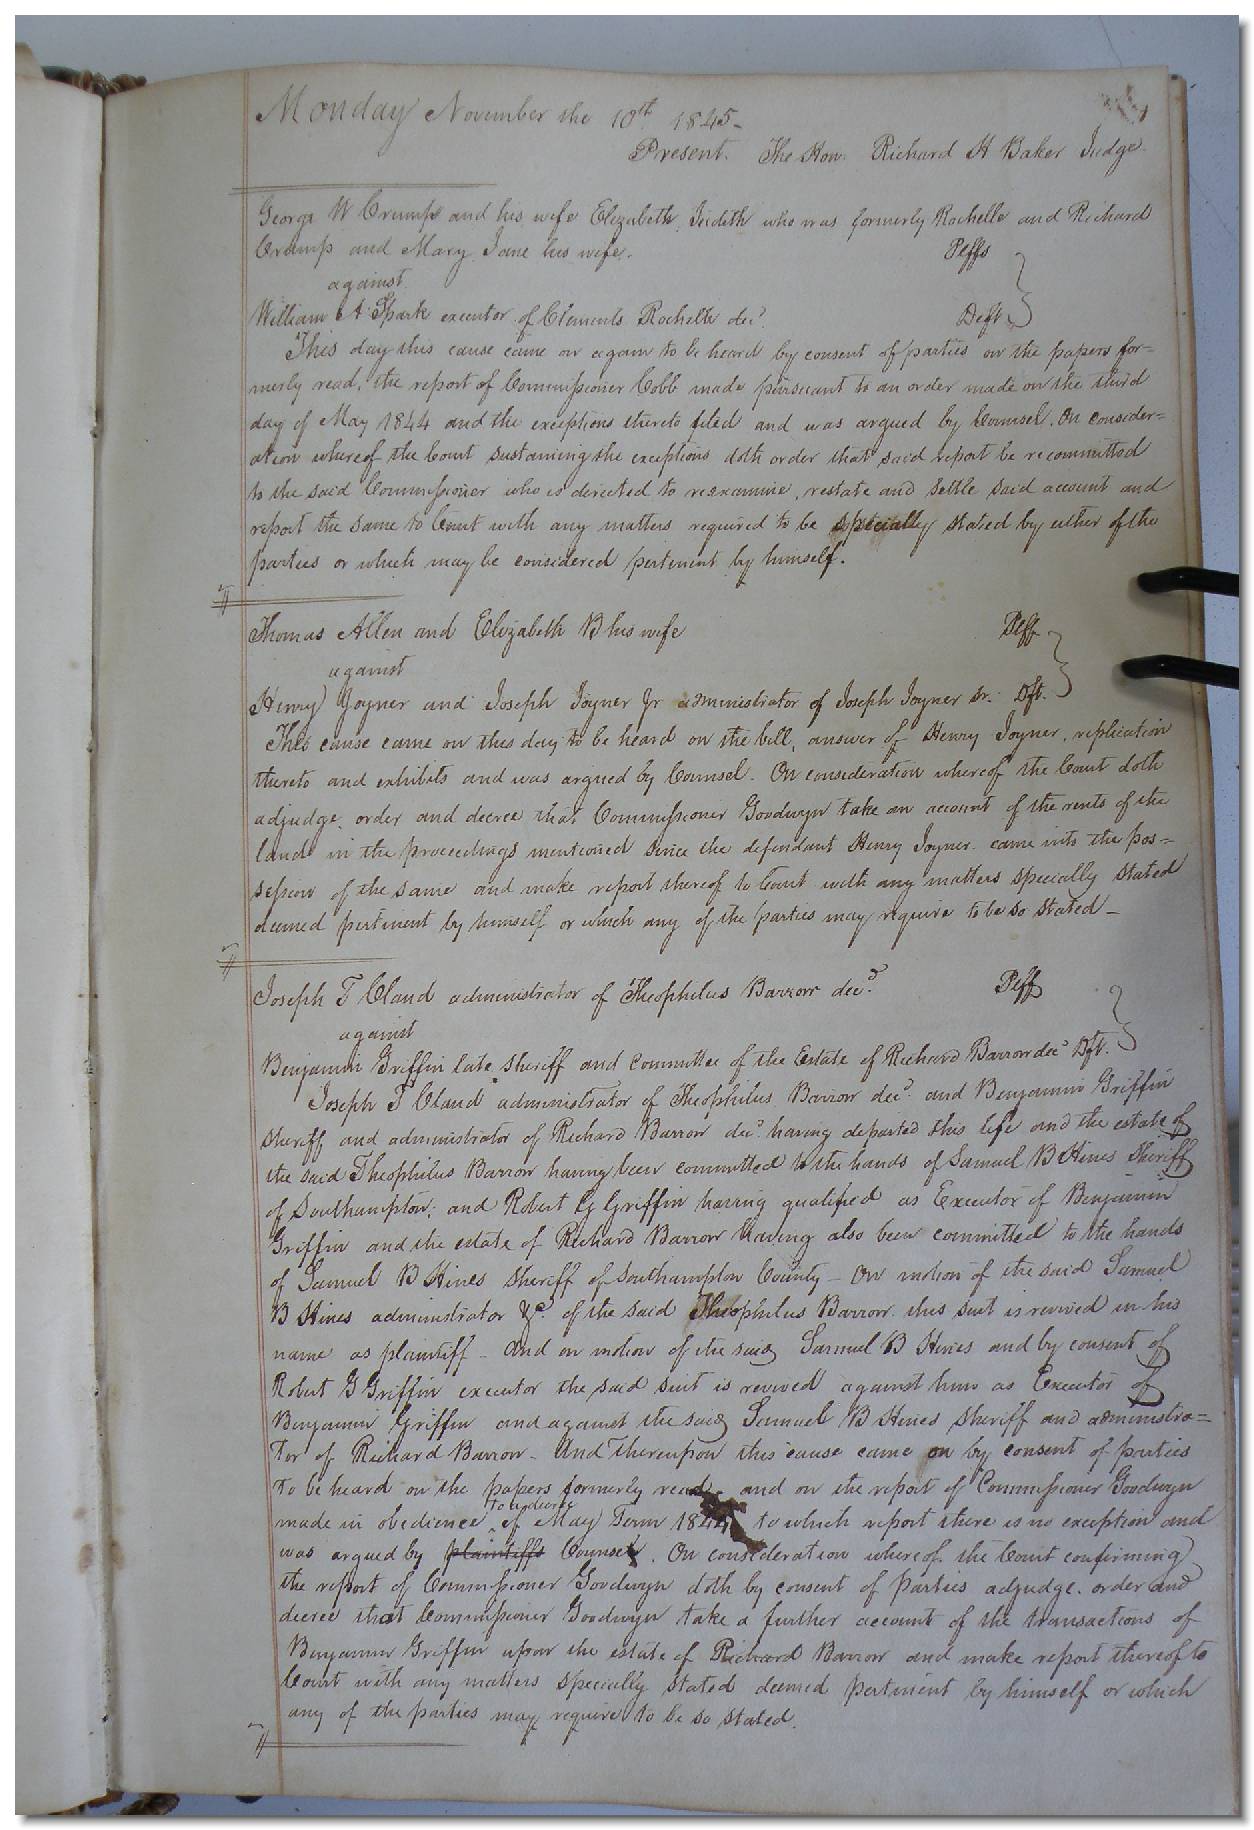 Monday November the 10th 1845-
Present. The Hon. Richard H Baker Judge.
George W Crump and his wife Elizabeth Judith who was formerly Rochelle and Richard
Crump and Mary Jane his wife. Plffs
against
William A Spark executor of Clements Rochelle decd. Deft.
This day this cause came on again to be heard by consent of parties on the papers for=
merly read, the report of Commissioner Cobb made pursuant to an order made on the third
day of May 1844 and the exceptions thereto filed and was argued by Counsel. On consider=
ation whereof the Court sustaining the exceptions doth order that said report be recommitted
to the said Commissioner who is directed to reexamine, restate and settle said account and
report the same to Court with any matters required to be specially stated by either of the
parties or which may be considered pertinent by himself.
Thomas Allen and Elizabeth B his wife Plff
against
Henry Joyner and Joseph Joyner Jr administrator of Joseph Joyner Sr. Dft.
This cause came on this day to be heard on the bill, answer of Henry Joyner, replication
thereto and exhibits and was argued by Counsel. On consideration whereof the Court doth
adjudge, order and decree that Commissioner Goodwyn take an account of the rents of the
land in the proceedings mentioned since the defendant Henry Joyner came into the pos=
session of the same and make report thereof to Court with any matters specially stated
deemed pertinent by himself or which any of the parties may require to be so stated-
Joseph T Claud administrator of Theophilus Barrow decd. Plff
against
Benjamin Griffin late sheriff and committee of the Estate of Richard Barrow decd Dft.
Joseph T Claud administrator of Theophilus Barrow decd. and Benjamin Griffin
sheriff and administrator of Richard Barrow decd. having departed this life and the estate of
the said Theophilus Barrow having been committed to the hands of Samuel B Hines Sheriff
of Southampton; and Robert G Griffin having qualified as Executor of Benjamin
Griffin and the estate of Richard Barrow having also been committed to the hands
of Samuel B Hines Sheriff of Southampton County - On motion of the said Samuel
B Hines administrator &c. of the said Theophilus Barrow this suit is revived in his
name as plaintiff - And on motion of the said Samuel B Hines and by consent of
Robert G Griffin executor the said suit is revived against him as Executor of
Benjamin Griffin and against the said Samuel B Hines Sheriff and administra=
tor of Richard Barrow - And thereupon this cause came on by consent of parties
to be heard on the papers formerly read and on the report of Commissioner Goodwyn
made in obedience to a decree of May Term 1844 to which report there is no exception and
was argued by plaintiffs Counsel. On consideration whereof the Court confirming
the report of Commissioner Goodwyn doth by consent of parties adjudge, order and
decree that Commissioner Goodwyn take a further account of the transactions of
Benjamin Griffin upon the estate of Richard Barrow and make report thereof to
Court with any matters specially stated deemed pertinent by himself or which
any of the parties may require to be so stated.